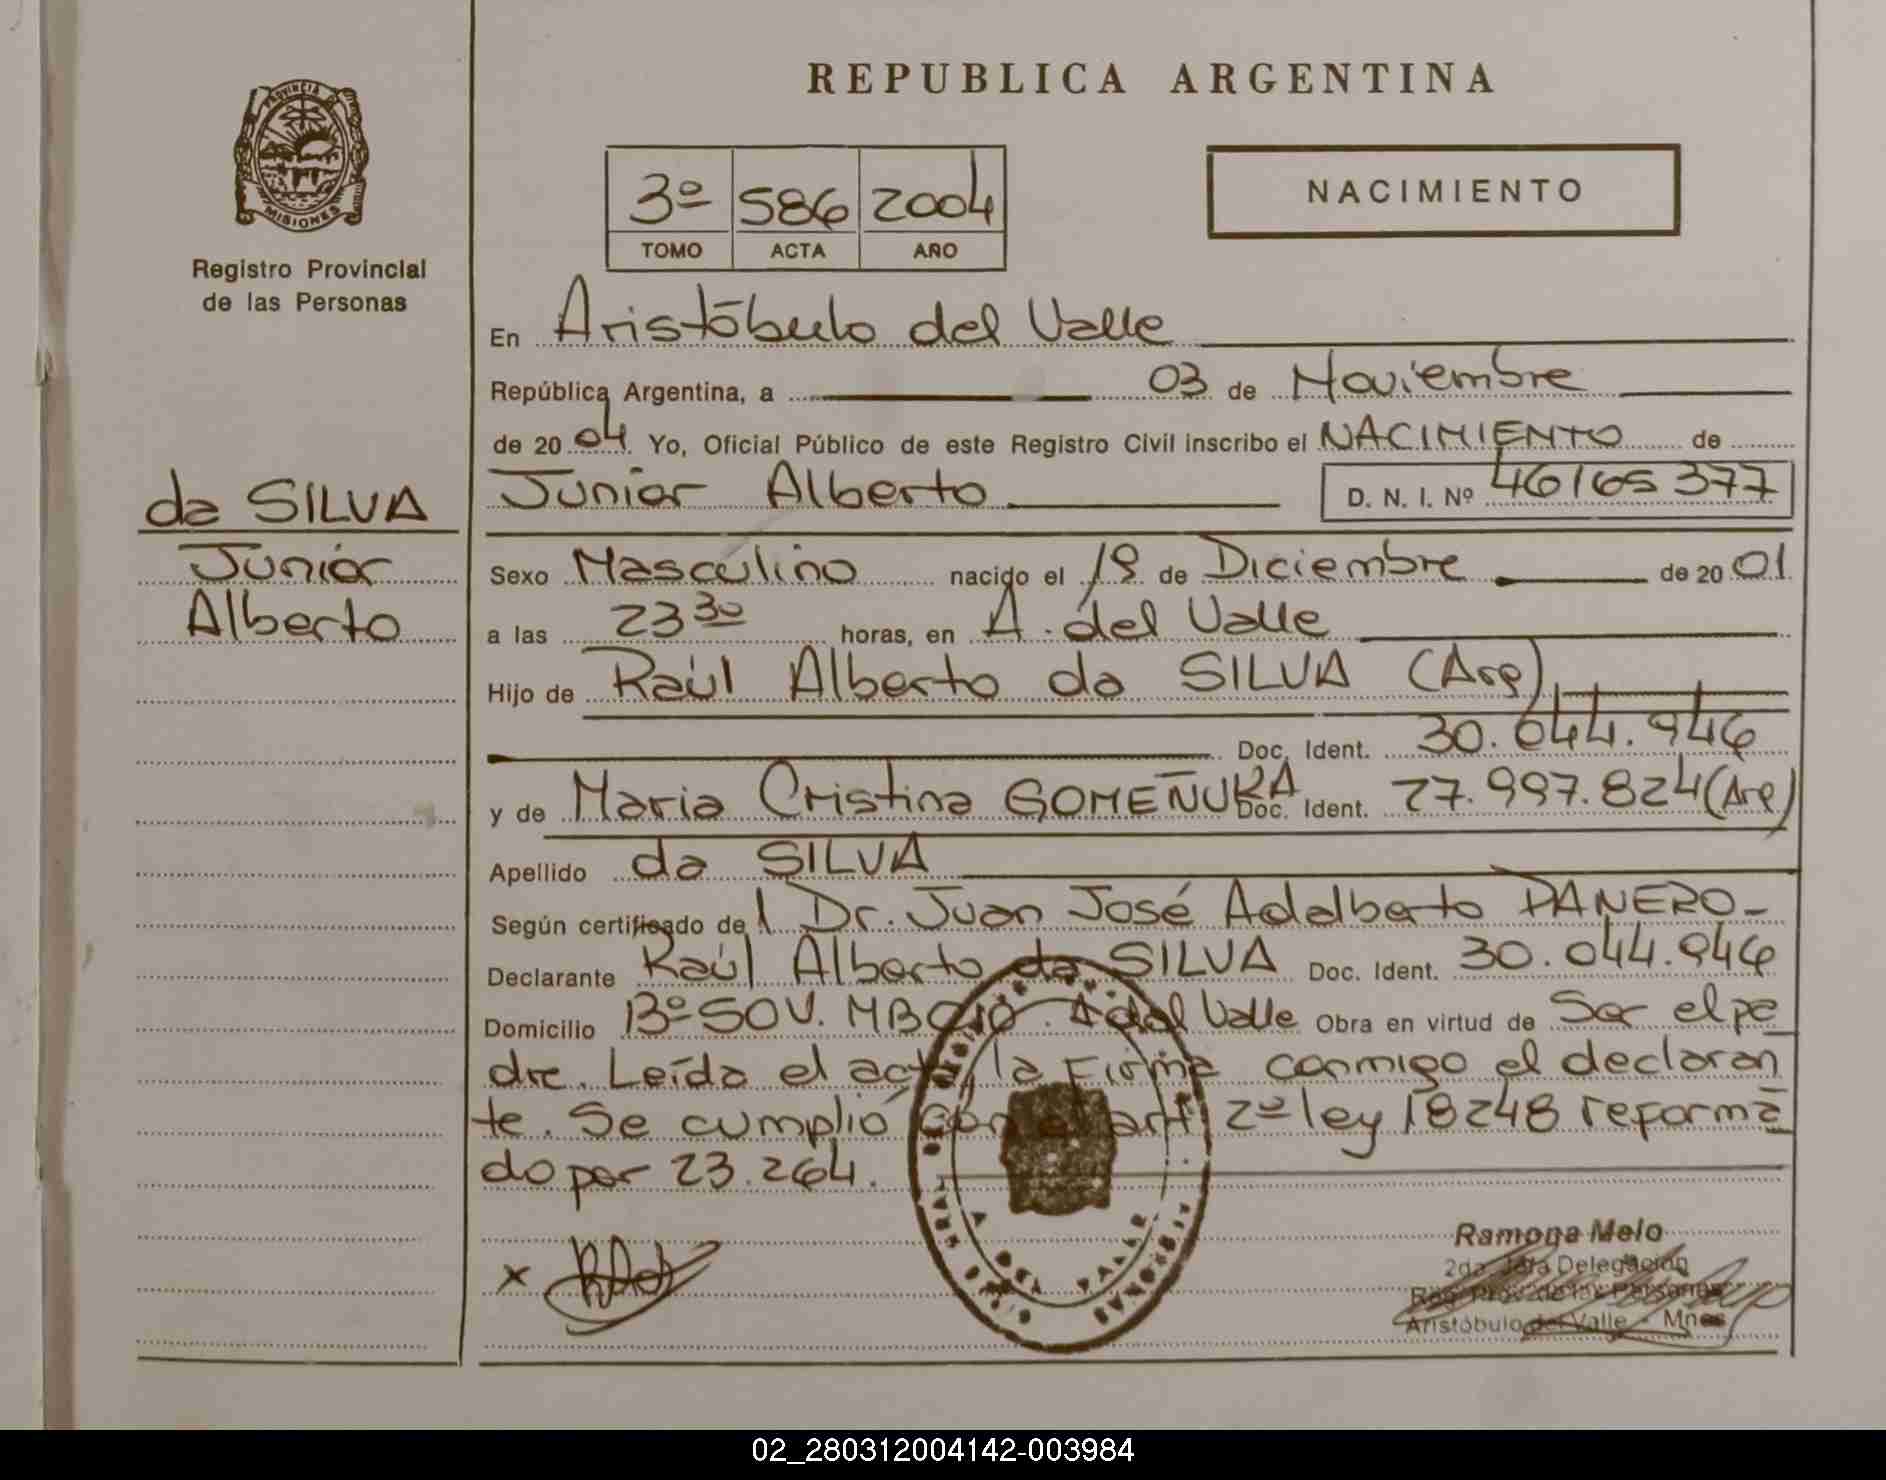 PROVINCIA DE
MISIONES
Registro Provincial
de las Personas
da SILVA
Junior
Alberto
REPUBLICA ARGENTINA
3º 586 2004
TOMO ACTA AÑO
NACIMIENTO
En Aristóbulo del Valle
República Argentina, a 03 de Noviembre
de 20 04 Yo, Oficial Público de este Registro Civil inscribo el NACIMIENTO de
Junior Alberto D. N. I. Nº 46165377
Sexo Masculino nacido el 19 de Diciembre de 20 01
a las 23 30 horas, en A. del Valle
Hijo de Raúl Alberto da SILVA (Arg)
Doc. Ident. 30.044.946
y de Maria Cristina GOMEÑUKA Doc. Ident. 27.997.824 (Arg)
Apellido da SILVA
Según certificado del Dr. Juan José Adalberto PANERO-
Declarante Raúl Alberto da SILVA Doc. Ident. 30.044.946
Domicilio Bº SOV. A del Valle Obra en virtud de Ser el pa
dre. Leída el acta, la Firma conmigo el declaran
te. Se cumplió con el art 2º ley 18248 reforma
do por 23.264.
x
A DEL VALLE
MISIONES
Ramona Melo
2da. Jefa Delegación
Reg. Prov. de las Personas
Aristóbulo del Valle - Mnes
02_280312004142-003984